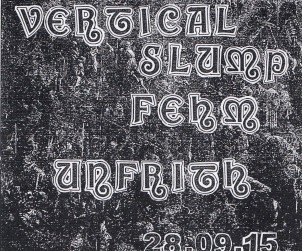 VERTICAL
SLUMP
FEHM
UNFRITH
28.09.15